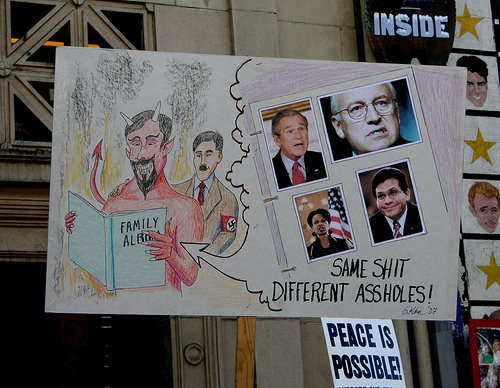 INSIDE
FAMILY
ALBUM
SAME SHIT
DIFFERENT ASSHOLES!
'07
PEACE IS
POSSIBLE!